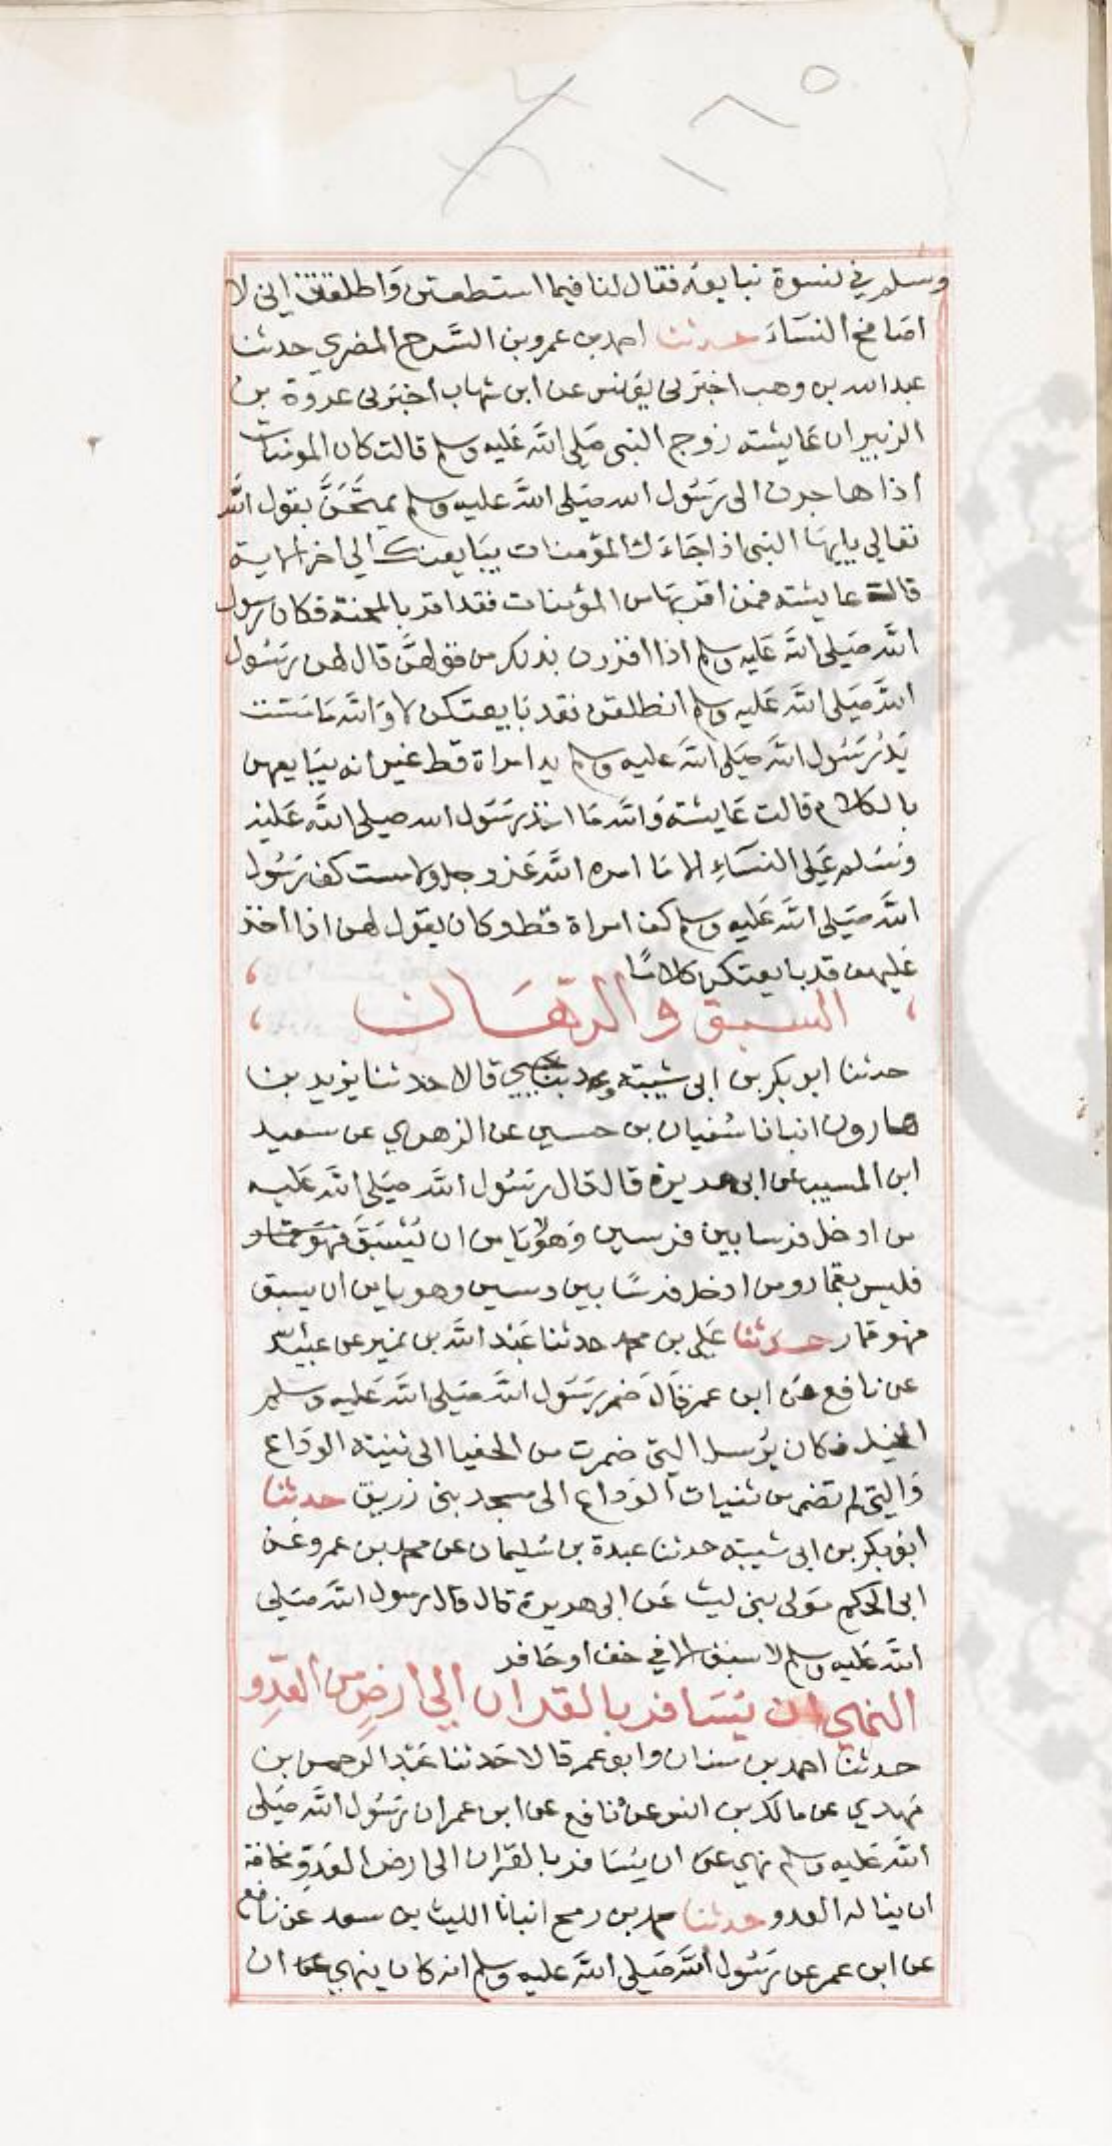 وسلم في نسوة نبايعه فقال لنا فيما استطعتن واطلقتن اني لا
اصافح النساء حدثنا احمد بن عمرو بن السرح المصري حدثنا
عبد الله بن وهب اخبرني يونس عن ابن شهاب اخبرني عروة بن
الزبير ان عايشة زوج النبي صلى الله عليه وسلم قالت كان المومنات
اذا هاجرن الى رسول الله صلى الله عليه وسلم يمتحن بقول الله
تعالي يايها النبي اذا جاءك المؤمنات يبايعنك الي اخر الاية
قالت عايشة فمن اقر بها من المؤمنات فقد اقر بالمحنة فكان رسول
الله صلى الله عليه وسلم اذا اقررن بذلك من قولهن قال لهن رسول
الله صلى الله عليه وسلم انطلقن فقد بايعتكن لا والله ما مست
يد رسول الله صلى الله عليه وسلم يد امراة قط غير انه يبايعهن
بالكلام قالت عايشة والله ما اخذ رسول الله صلى الله عليه
وسلم على النساء الا ما امره الله عز وجل ولا مست كف رسول
الله صلى الله عليه وسلم كف امراة قط وكان يقول لهن اذا اخذ
عليهن قد بايعتكن كلاما
السبق والرهان
حدثنا ابو بكر بن ابي شيبة ومحمد بن يحيي قالا حدثنا يزيد بن
هارون انبانا سفيان بن حسين عن الزهري عن سعيد
ابن المسيب عن ابي هريرة قال قال رسول الله صلى الله عليه
من ادخل فرسا بين فرسين وهو لا يامن ان يسبق فهو قمار
فليس بقمار ومن ادخل فرسا بين وسين وهو يامن ان يسبق
فهو قمار حدثنا علي بن محمد حدثنا عبد الله بن نمير عن عبيد الله
عن نافع عن ابن عمر قال ضمر رسول الله صلى الله عليه وسلم
الخيل فكان يرسل التي ضمرت من الحفيا الى ثنية الوداع
والتي لم تضمر من ثنيات الوداع الى مسجد بني زريق حدثنا
ابو بكر بن ابي شيبة حدثنا عبدة بن سليمان عن محمد بن عمرو عن
ابي الحكم مولى بني ليث عن ابي هريرة قال قال رسول الله صلى
الله عليه وسلم لا سبق الا في خف او حافر
النهي ان يسافر بالقران الي ارض العدو
حدثنا احمد بن سنان وابو عمر قالا حدثنا عبد الرحمن بن
مهدي عن مالك بن انس عن نافع عن ابن عمر ان رسول الله صلى
الله عليه وسلم نهي عن ان يسافر بالقران الى ارض العدو مخافة
ان يناله العدو حدثنا محمد بن رمح انبانا الليث بن سعد عن نافع
عن ابن عمر عن رسول الله صلى الله عليه وسلم انه كان ينهي عن ان